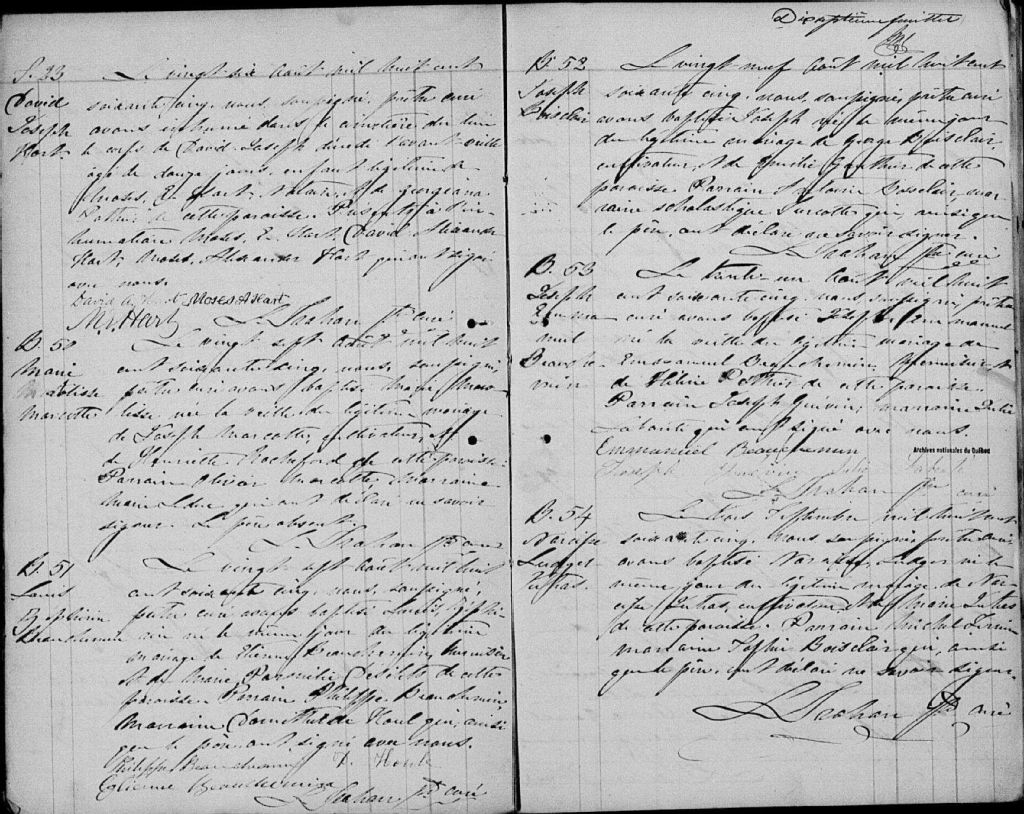 S. 23 Le vingt six Août mil huit cent
David soixante cinq, nous, soussigné, prêtre curé
Joseph avons inhumé dans le cimetière du lieu
Hart le corps de David Joseph décédé l'avant veille
âgé de douze jours, enfant légitime de
Moses, E. Hart, et de Georgiana
de cette paroisse. Présents à l'in-
humation Moses, E. Hart, David Alexander
Hart, Moses, Alexander Hart qui ont signé
avec nous.
David A. Hart Moses A Hart
M. E. Hart L. Shahan Ptre curé
B. 50 Le vingt sept Août mil huit
Marie cent soixante cinq, nous, soussigné,
prêtre curé avons baptisé Marie
Marcotte née la veille du légitime mariage
de Joseph Marcotte, cultivateur, et
de Henriette Rocheford de cette paroisse.
Parrain Olivier Marcotte, Marraine
qui ont déclaré ne savoir
signer. Le père absent.
L. Shahan Ptre curé
B. 51 Le vingt sept Août mil huit
Louis cent soixante cinq, nous, soussigné,
prêtre curé avons baptisé Louis
Beauchemin né le même jour du légitime
mariage de Etienne Beauchemin, menuisier
et de Marie de cette
paroisse. Parrain Philippe Beauchemin
Marraine Domithilde Houle qui, ainsi
que le père ont signé avec nous.
Philippe Beauchemin D. Houle
Etienne Beauchemin
L. Shahan Ptre curé
Dixseptième feuillet
B. 52 Le vingt neuf Août mil huit cent
Joseph soixante cinq, nous, soussigné, prêtre curé
Boisclair avons baptisé Joseph né le même jour
du légitime mariage de George Boisclair,
cultivateur, et de Gauthier de cette
paroisse. Parrain Boisclair, mar-
raine Scholastique Turcotte qui, ainsi que
le père, ont déclaré ne savoir signer.
L. Shahan Ptre curé
B. 53 Le trente un Août mil huit
Joseph cent soixante cinq, nous, soussigné, prêtre
Emma curé avons baptisé Joseph Emmanuel
nuel né la veille du légitime mariage de
Beauche Emmanuel Beauchemin, menuisier et
min de Hélène Pothier de cette paroisse.
Parrain Joseph Guévin, marraine Julie
qui ont signé avec nous.
Emmanuel Beauchemin
Archives nationales du Québec
Joseph Julie
L. Shahan Ptre curé
B. 54 Le trois Septembre mil huit cent
Narcisse soixante cinq, nous soussigné prêtre curé
Ludger avons baptisé Narcisse, Ludger né le
même jour du légitime mariage de Nar-
cisse cultivateur et de Marie
de cette paroisse. Parrain Michel
marraine Sophie Boisclair qui, ainsi
que le père, ont déclaré ne savoir signer.
L. Shahan Ptre curé